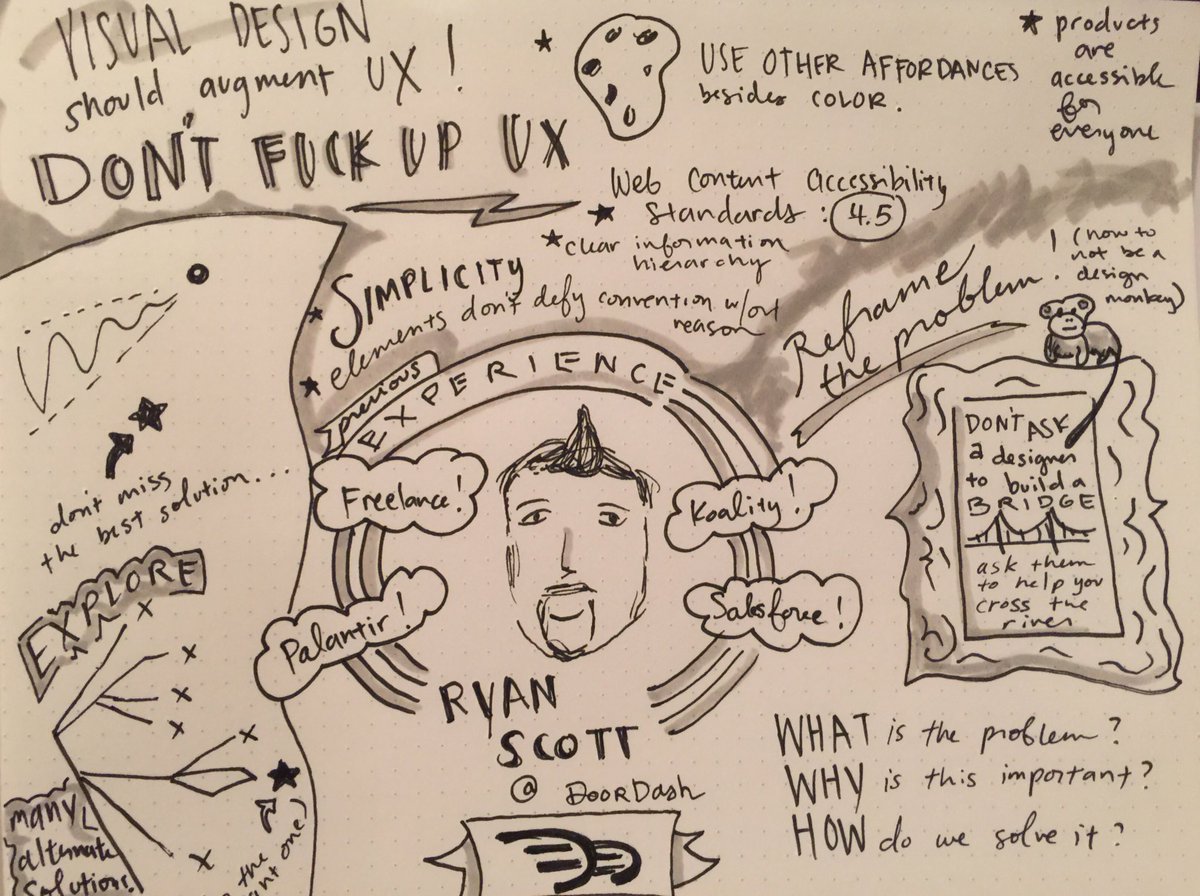 VISUAL DESIGN
should augment UX!
DON'T FUCK UP UX
USE OTHER AFFORDANCES
besides COLOR.
products
are
accessible
for
everyone
Web Content accessibility
Standards: 4.5
clear information
hierarchy
SIMPLICITY
elements don't defy convention w/out
reason
Reframe
the problem.
! (how to
not be a
design
monkey)
previous
EXPERIENCE
Freelance!
Koality!
Palantir!
Salesforce!
RYAN
SCOTT
@ DOORDash
DON'T ASK
a designer
to build a
BRIDGE
ask them
to help you
cross the
river
don't miss
the best solution...
EXPLORE
many
alternate
solutions.
the
one)
WHAT is the problem?
WHY is this important?
HOW do we solve it?